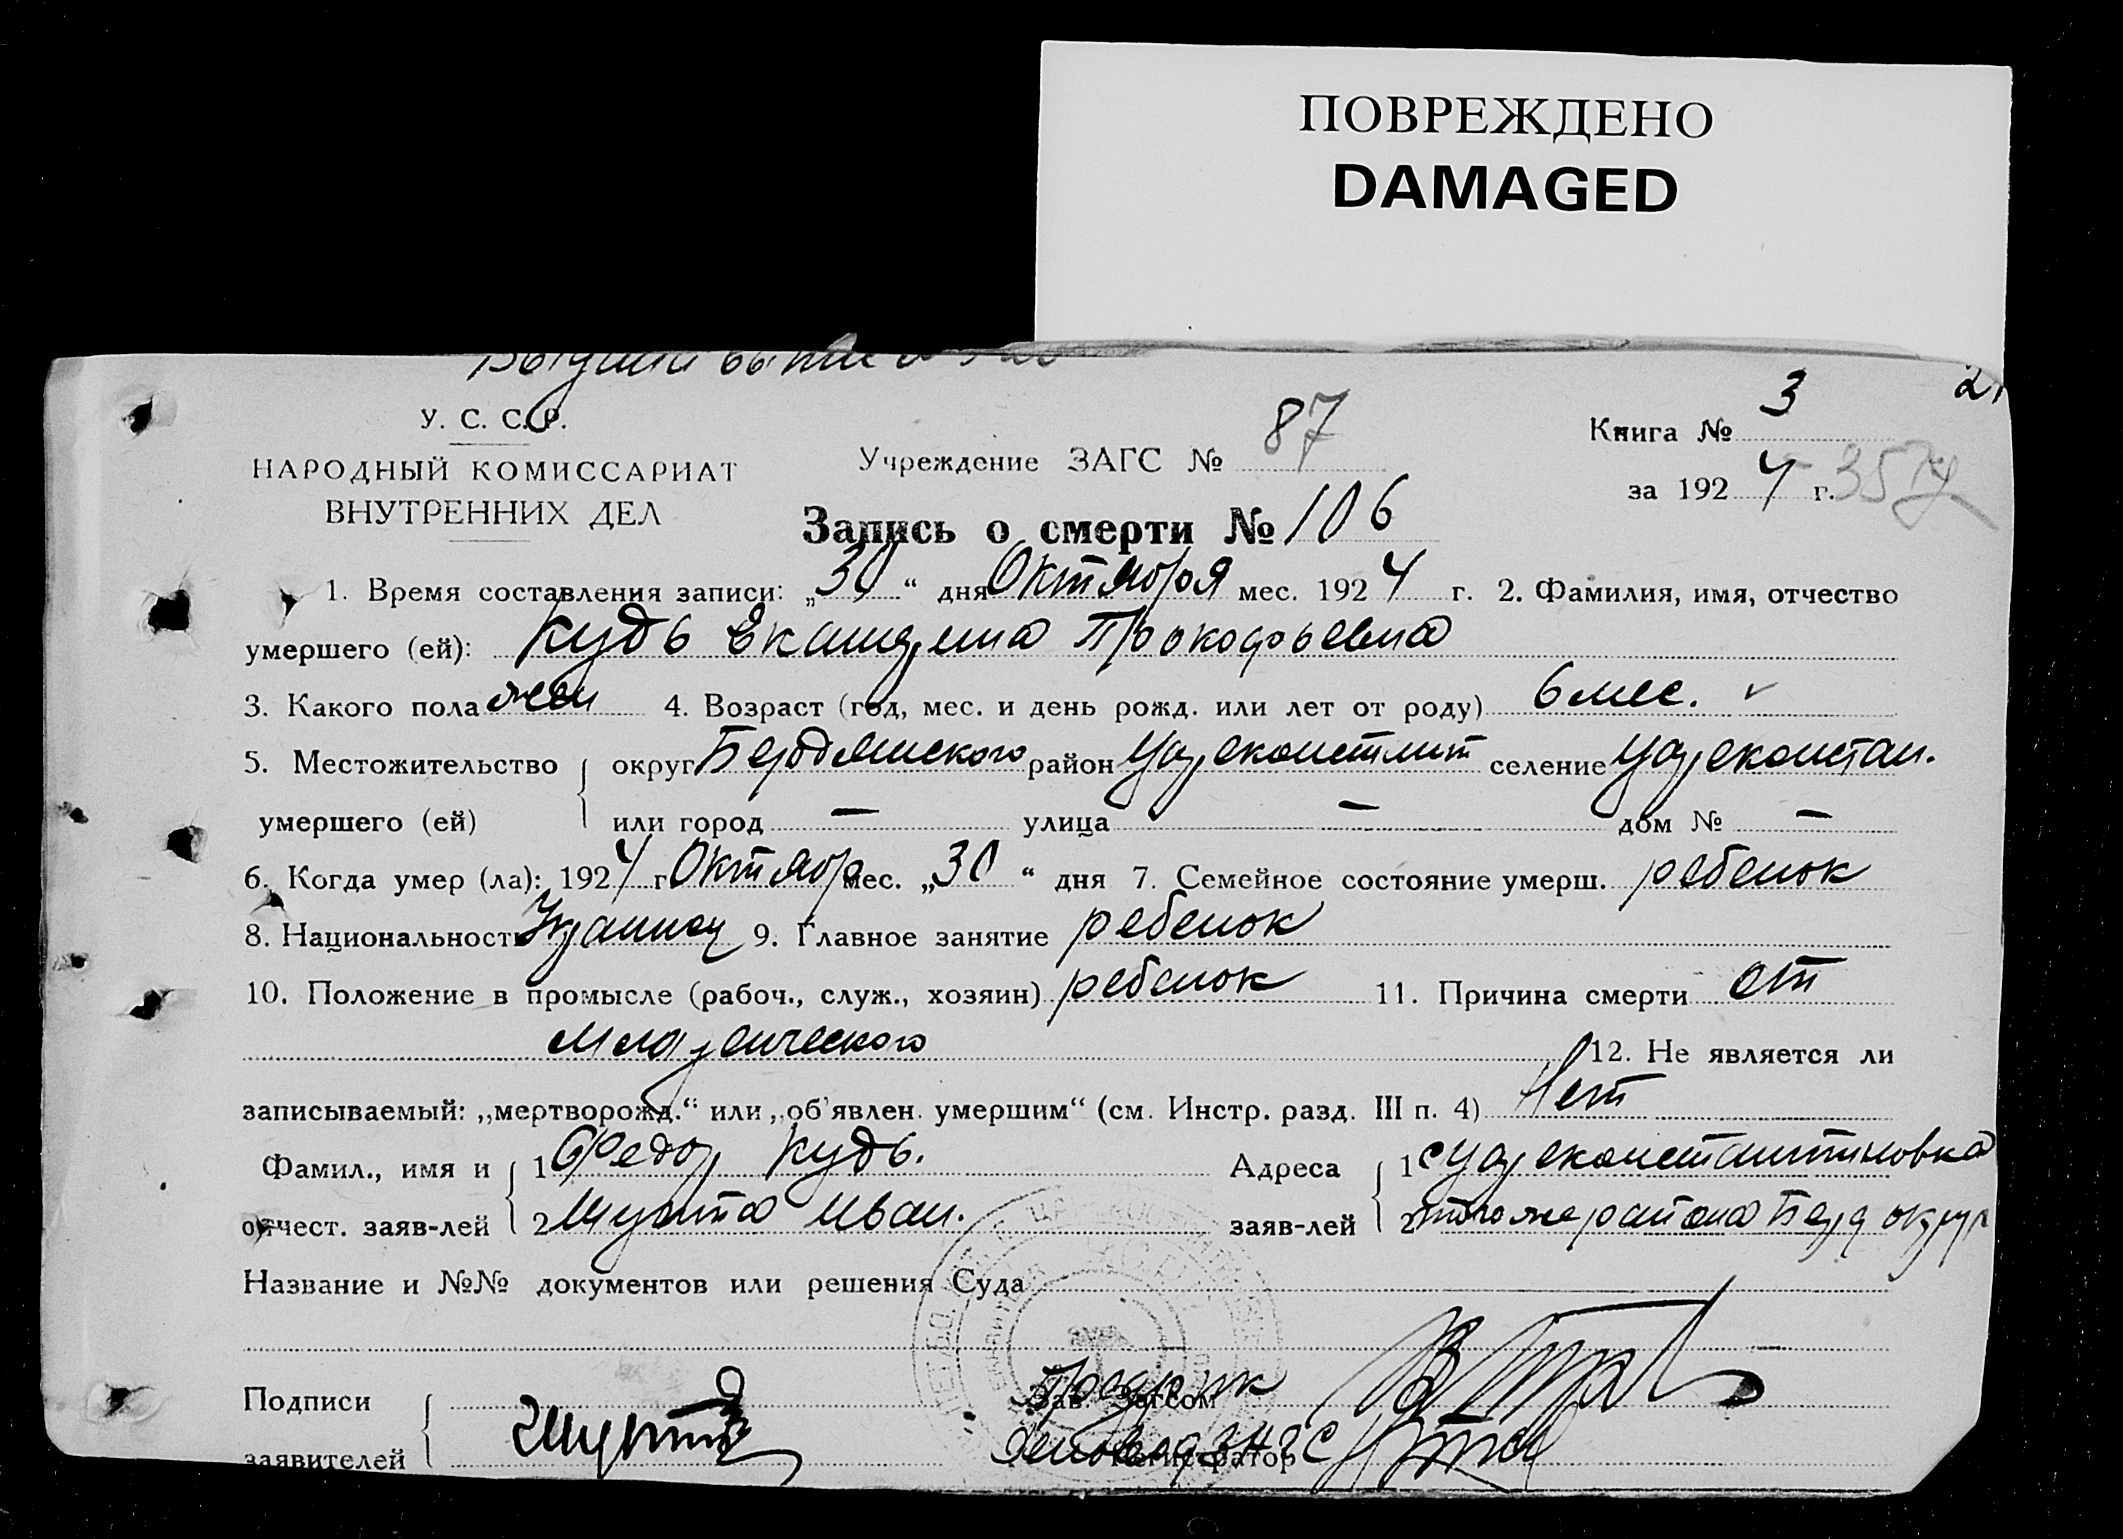 ПОВРЕЖДЕНО
DAMAGED
3
У. С. С. Р.
Книга №
87
НАРОДНЫЙ КОМИССАРИАТ
Учреждение ЗАГС №
за 1924 г.
ВНУТРЕННИХ ДЕЛ
Запись о смерти № 106
1. Время составления записи: „30“ дня Октября мес. 1924 г. 2. Фамилия, имя, отчество
умершего (ей): Кудь Екатерина Прокофьевна
3. Какого пола жен 4. Возраст (год, мес. и день рожд. или лет от роду) 6 мес.
5. Местожительство округ Бердянского район Цареконстант селение Цареконстан.
умершего (ей) или город — улица — дом № —
6. Когда умер (ла): 1924 г. Октябр мес. „30“ дня 7. Семейное состояние умерш. ребенок
8. Национальность Украинец 9. Главное занятие ребенок
10. Положение в промысле (рабоч., служ., хозяин) ребенок 11. Причина смерти от
младенческого 12. Не является ли
записываемый: „мертворожд.“ или „об'явлен. умершим“ (см. Инстр. разд. III п. 4) Нет
Фамил., имя и 1 Федор Кудь. Адреса 1 с Цареконстантиновка
отчест. заяв-лей 2 Иван. заяв-лей 2 того же района Берд округа
Название и №№ документов или решения Суда
Подписи Зав. Загсом
заявителей Регистратор